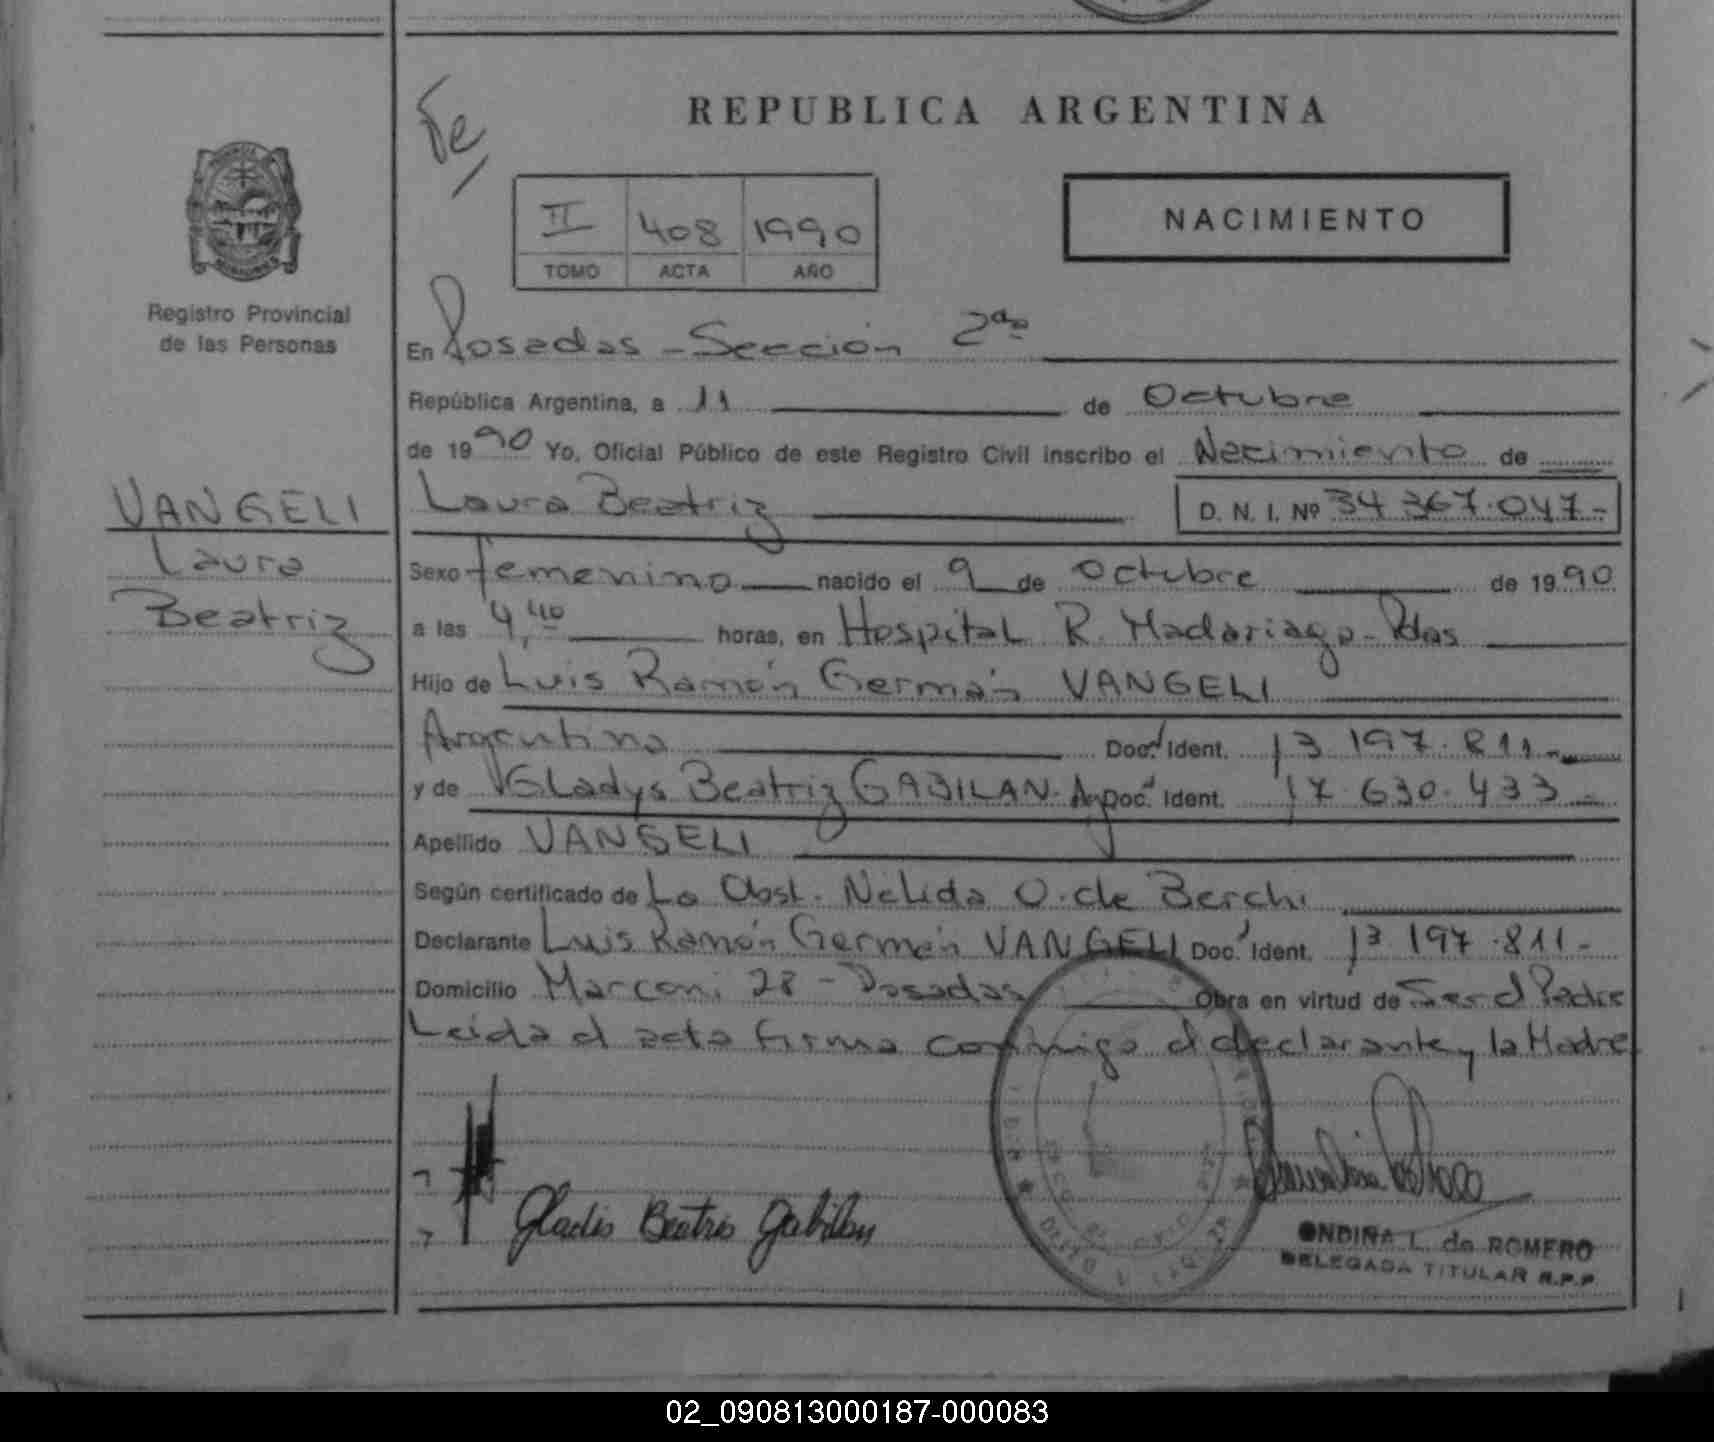 Fe
REPUBLICA ARGENTINA
II 408 1990
TOMO ACTA AÑO
NACIMIENTO
Registro Provincial
de las Personas
En Posadas - Sección 2da
República Argentina, a 11 de Octubre
de 1990 Yo, Oficial Público de este Registro Civil inscribo el Nacimiento de
VANGELI
Laura
Beatriz
Laura Beatriz D. N. I. Nº 34 367.047-
Sexo femenino nacido el 9 de Octubre de 1990
a las 4,40 horas, en Hospital R. Madariaga - Pdas
Hijo de Luis Ramón Germán VANGELI
Argentino Doc. Ident. 13 197.811-
y de Gladys Beatriz GABILAN. Arg Doc. Ident. 17.630.433-
Apellido VANGELI
Según certificado de La Obst. Nelida O. de Berchi
Declarante Luis Ramón Germán VANGELI Doc. Ident. 13 197.811-
Domicilio Marconi 28 - Posadas Obra en virtud de Ser el Padre
Leida el acta firma conmigo el declarante y la Madre
Gladis Beatris Gabilan
ONDINA L. de ROMERO
DELEGADA TITULAR R.P.P.
02_090813000187-000083